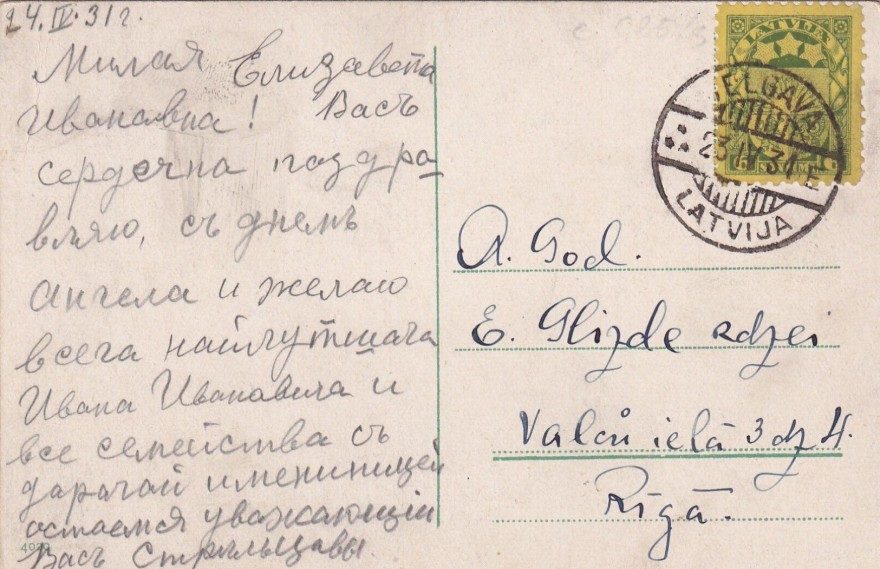 24.IV.31 г.
Милая Елизавета
Ивановна! Васъ
сердечна паздра
вляю, съ днемъ
Ангела и желаю
всега найлутшага
Ивана Ивановича и
все семейства съ
дарагай имениницей
остаемся уважающіи
Васъ Стрельцавы.
4979
LATVIJA
JELGAVA
23 IV 31
LATVIJA
A. God.
E. Glizde adzei
Valņu ielā 3 dz 4.
Rīgā.